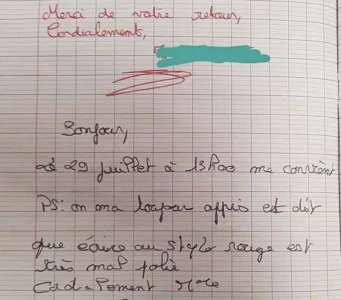 Merci de votre retour,
Cordialement,
Bonjour,
Le 29 juillet à 13h00 me convient
PS: on ma toujour appris et dit
que écrire au stylo rouge est
très mal polie